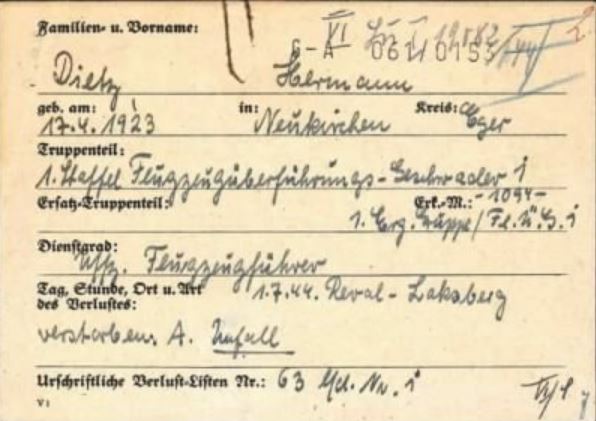 Familien- u. Vorname:
VI
G-A 06240153/44
Dietz Hermann
geb. am: in: Kreis:
17.4.1923 Neukirchen Eger
Truppenteil:
1. Staffel Flugzeugüberführungs-Geschwader 1
Ersatz-Truppenteil: Erk.-M.: -1094-
1. Erg. Gruppe/Fl.Ü.G. 1
Dienstgrad:
Uffz. Flugzeugführer
Tag, Stunde, Ort u. Art 1.7.44. Reval - Laksberg
des Verlustes:
verstorben. A. Unfall
Urschriftliche Verlust-Listen Nr.: 63 Nr. 1
V1